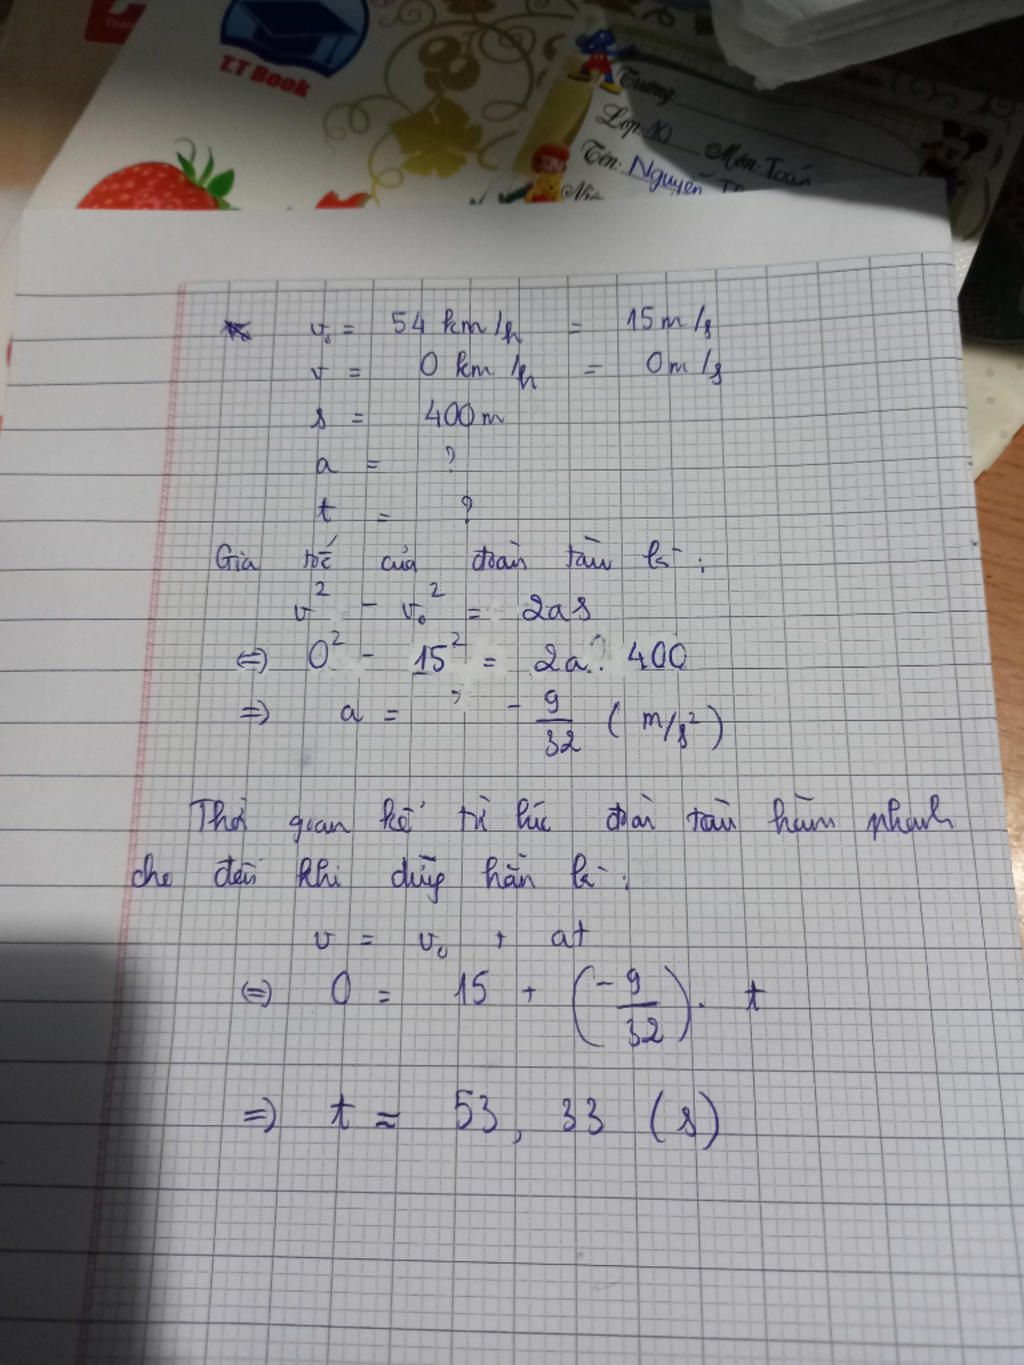 T.T Book
Trường:
Lớp: 10 Môn: Toán
Tên: Nguyễn
v₀ = 54 km/h = 15 m/s
v = 0 km/h = 0 m/s
s = 400 m
a = ?
t = ?
Gia tốc của đoàn tàu là:
v² - v₀² = 2as
⇔ 0² - 15² = 2a. 400
⇒ a = - 9/32 (m/s²)
Thời gian kể từ lúc đoàn tàu hãm phanh
cho đến khi dừng hẳn là:
v = v₀ + at
⇔ 0 = 15 + (-9/32). t
⇒ t ≈ 53,33 (s)